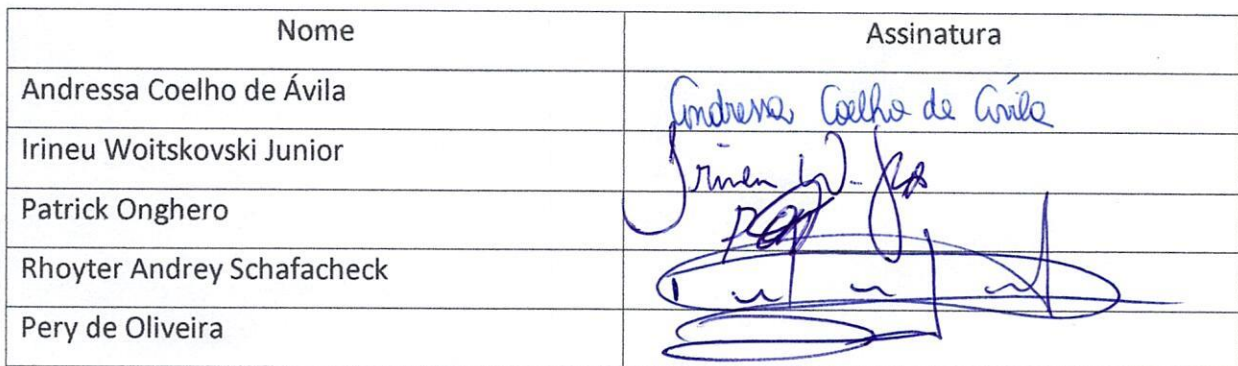 Nome Assinatura
Andressa Coelho de Ávila Andressa Coelho de Ávila
Irineu Woitskovski Junior Irineu W.
Patrick Onghero
Rhoyter Andrey Schafacheck
Pery de Oliveira